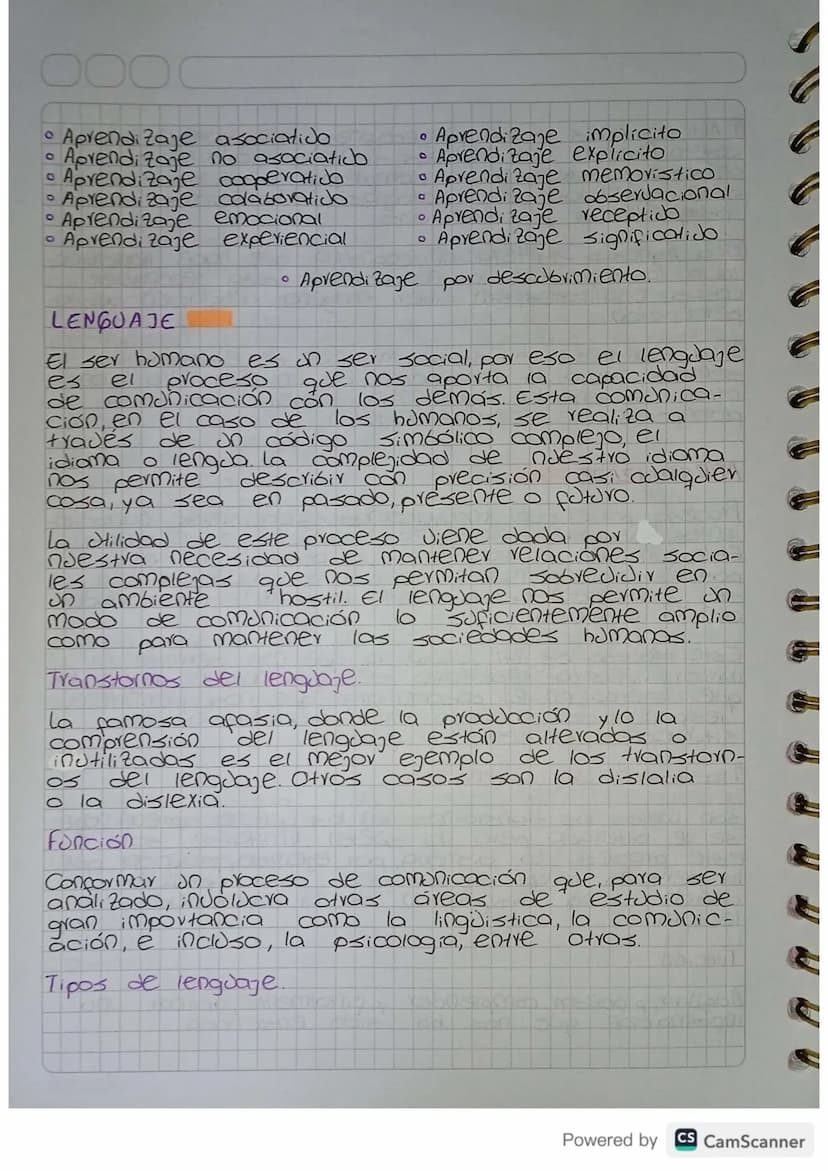 • Aprendizaje asociativo
• Aprendizaje no asociativo
• Aprendizaje cooperativo
• Aprendizaje colaborativo
• Aprendizaje emocional
• Aprendizaje experiencial
• Aprendizaje implicito
• Aprendizaje explicito
• Aprendizaje memoristico
• Aprendizaje observacional
• Aprendizaje receptivo
• Aprendizaje significativo
• Aprendizaje por descubrimiento.
LENGUAJE
El ser humano es un ser social, por eso el lenguaje
es el proceso que nos aporta la capacidad
de comunicación con los demás. Esta comunica-
ción, en el caso de los humanos, se realiza a
traves de un código simbólico complejo, el
idioma o lengua. La complejidad de nuestro idioma
nos permite describir con precisión casi cualquier
cosa, ya sea en pasado, presente o futuro.
La utilidad de este proceso viene dada por
nuestra necesidad de mantener relaciones socia-
les complejas que nos permitan sobrevivir en
un ambiente hostil. El lenguaje nos permite un
modo de comunicación lo suficientemente amplio
como para mantener las sociedades humanas.
Transtornos del lenguaje.
La famosa afasia, donde la producción y/o la
comprensión del lenguaje están alteradas o
inutilizadas es el mejor ejemplo de los transtorn-
os del lenguaje. Otros casos son la dislalia
o la dislexia.
Función
Conformar un proceso de comunicación que, para ser
análizado, involucra otras áreas de estudio de
gran importancia como la lingüistica, la comunic-
ación, e incluso, la psicologia, entre otras.
Tipos de lenguaje.
Powered by CS CamScanner